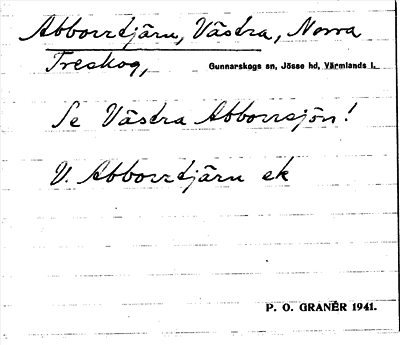 Abborrtjärn, Västra, Norra
Treskog, Gunnarskogs sn, Jösse hd, Värmlands l.
Se Västra Abborrsjön!
V. Abborrtjärn ek
P. O. GRANÉR 1941.